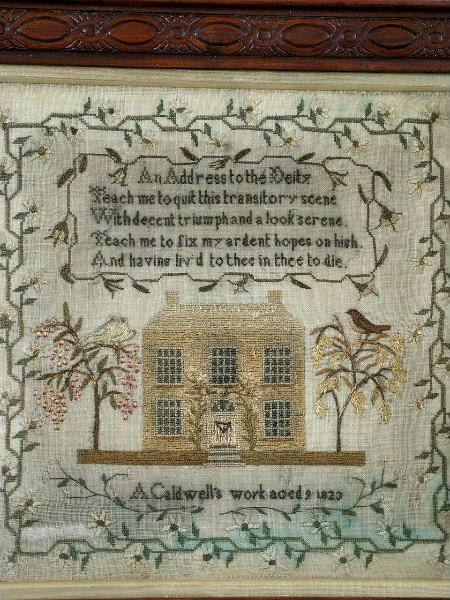 An Address to the Deity
Teach me to quit this transitory scene
With decent triumph and a look serene.
Teach me to fix my ardent hopes on high.
And having liv'd to thee in thee to die.
A Caldwell's work aged 9 1823